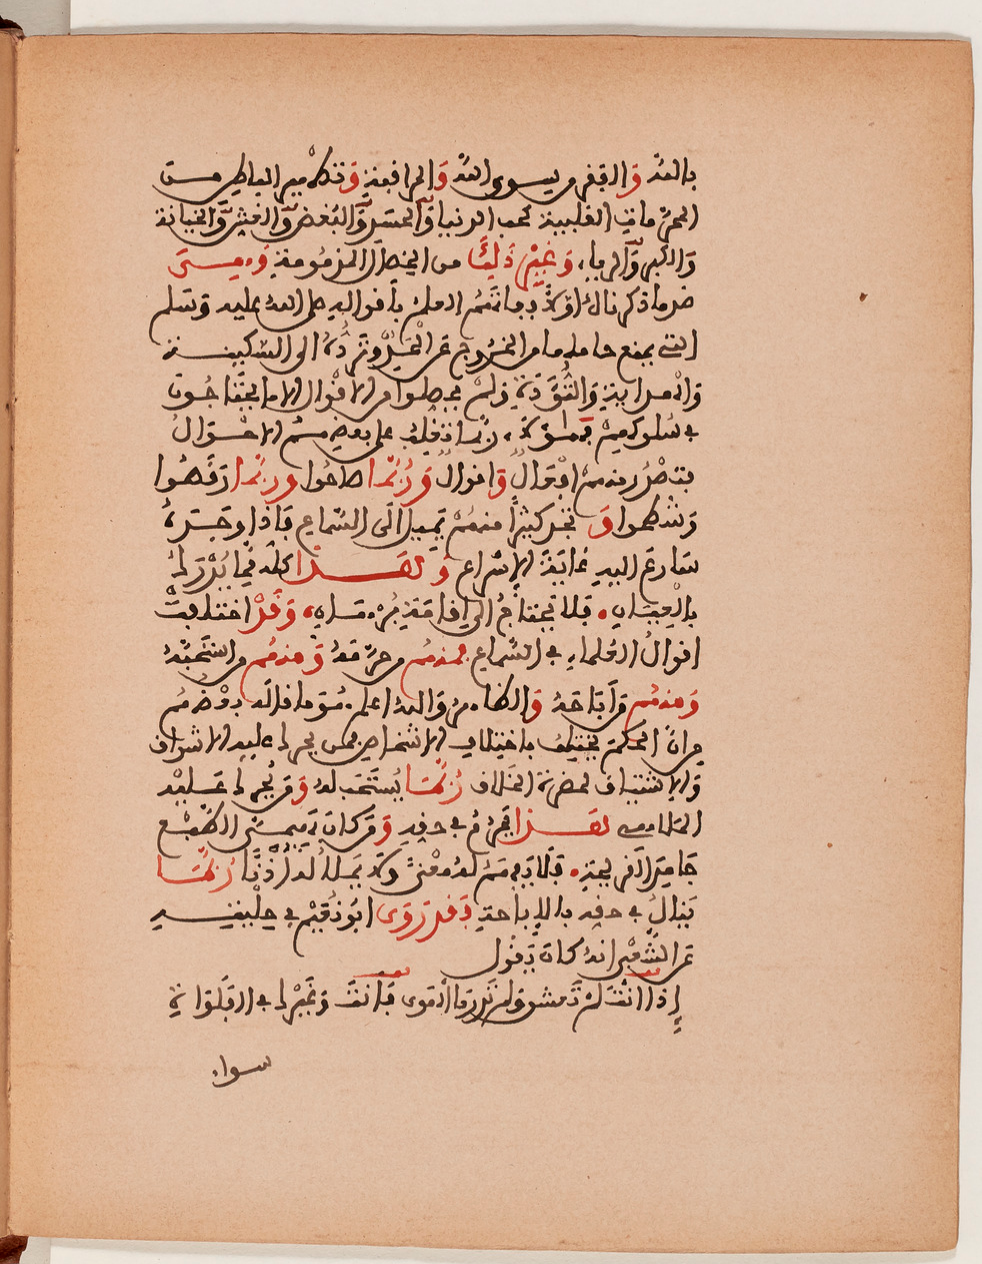 بالله والفقر مِن سوى الله والمراقبة وتطهير الباطن من
المحرمات القلبية كحب الدنيا والحسد والبغض والغش والخيانة
والكبر والرياء، وغير ذلك من الخصال المذمومة ومتى
ضم ما ذكرناه أولا دعائمهم العلم بأقواله صلى الله عليه وسلم
التي يمنع حاملها من الخروج عن الحد وترده إلى السكينة
والمراقبة والتؤدة ولم يحصلوا من الأقوال إلا ما يحتاجون
في سلوكهم ربما تغلب على بعض منهم الأحوال
فتصدر منهم أفعال وأقوال وربما صاحوا وربما رقصوا
وشطحوا و تجد كثيرا منهم يميل إلى السماع فإذا وجده
سارع إليه غاية الإسراع و لهذا كله فيما يدرك
بالعيان، فلا يحتاج إلى إقامة برهان، وقد اختلفت
أقوال العلماء في السماع فمنهم من حرمه ومنهم من استحبه
ومنهم من أباحه والظاهر والله أعلم هو ما قاله بعضهم
من أن الحكم يختلف باختلاف الأشخاص فمن يحمله عليه الأشواق
والاشتياق لحضرة الخلاق ربما يستحب له ومن يحمله عليه
لهذا يحرم في حقه ومن كان يميت الطبع
جامد القريحة، فلا يفهم له معنى ولا يميل له أذنا ربما
يقال في حقه بالإباحة فقد روى أبو نعيم في حليته
عن الشعبي أنه كان يقول
إذا أنت لم تعشق ولم تدر ما الهوى فأنت وعير في الفلاة
سواء